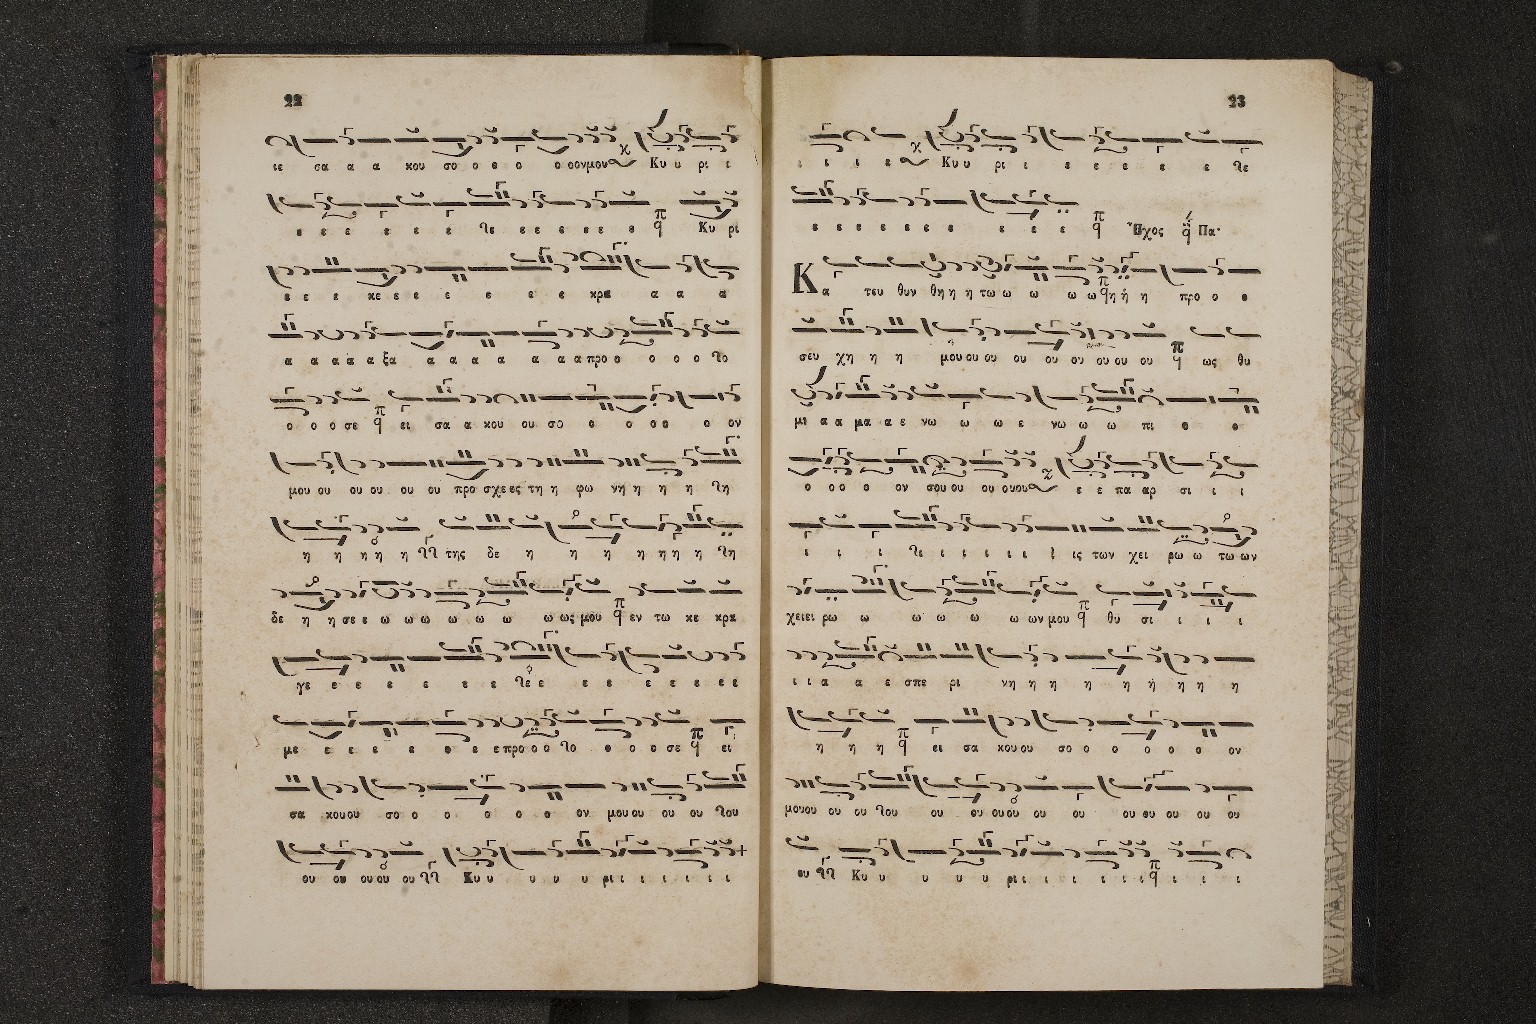 22
ιε σα α α κου σο ο ε ο ο οονμου Κυ υ ρι ι
ε ε ε ε ε ε τε ε ε ε ε ε ε Κυ ρι
ε ε ε κε ε ε ε ε ε ε κρα α α α
α α α α α ξα α α α α α α α προ ο ο ο ο το
ο ο ο σε ει σα α κου ου σο ο ο ο ο ο ον
μου ου ου ου ου ου προ σχε ες τη η φω νη η η η τη
η η η η η της δε η η η η η η η τη
δε η η σε ε ω ω ω ω ω ω ω ως μου εν τω κε κρα
γε ε ε ε ε ε ε τε ε ε ε ε ε ε ε
με ε ε ε ε ε ε προ ο ο το ο ο ο σε ει
σα κου ου σο ο ο ο ο ο ο ον μου ου ου ου του
ου ου ου ου ου Κυ υ υ υ υ ρι ι ι ι ι ι
23
ι ι ι ε Κυ υ ρι ι ε ε ε ε ε τε
ε ε ε ε ε ε ε ε ε ε Ἦχος Πα·
Κα τευ θυν θη η η τω ω ω ω ω η ή η προ ο ο
σευ χη η η μου ου ου ου ου ου ου ου ου ως θυ
μι α α μα α ε νω ω ω ε νω ω ω πι ο ο
ο ο ο ο ον σου ου ου ουου ε ε πα αρ σι ι ι
ι ι ι τι ι ι ι ι ι ις των χει ρω ω τω ων
χειει ρω ω ω ω ω ω ων μου θυ σι ι ι ι
ι ι α α ε σπε ρι νη η η η η ή η η η
η η η ει σα κου ου σο ο ο ο ο ο ον
μουου ου ου του ου ου ου ου ου ου ου ου ου ου ου
ου Κυ υ υ υ υ ρι ι ι ι ι ι ι ι ι